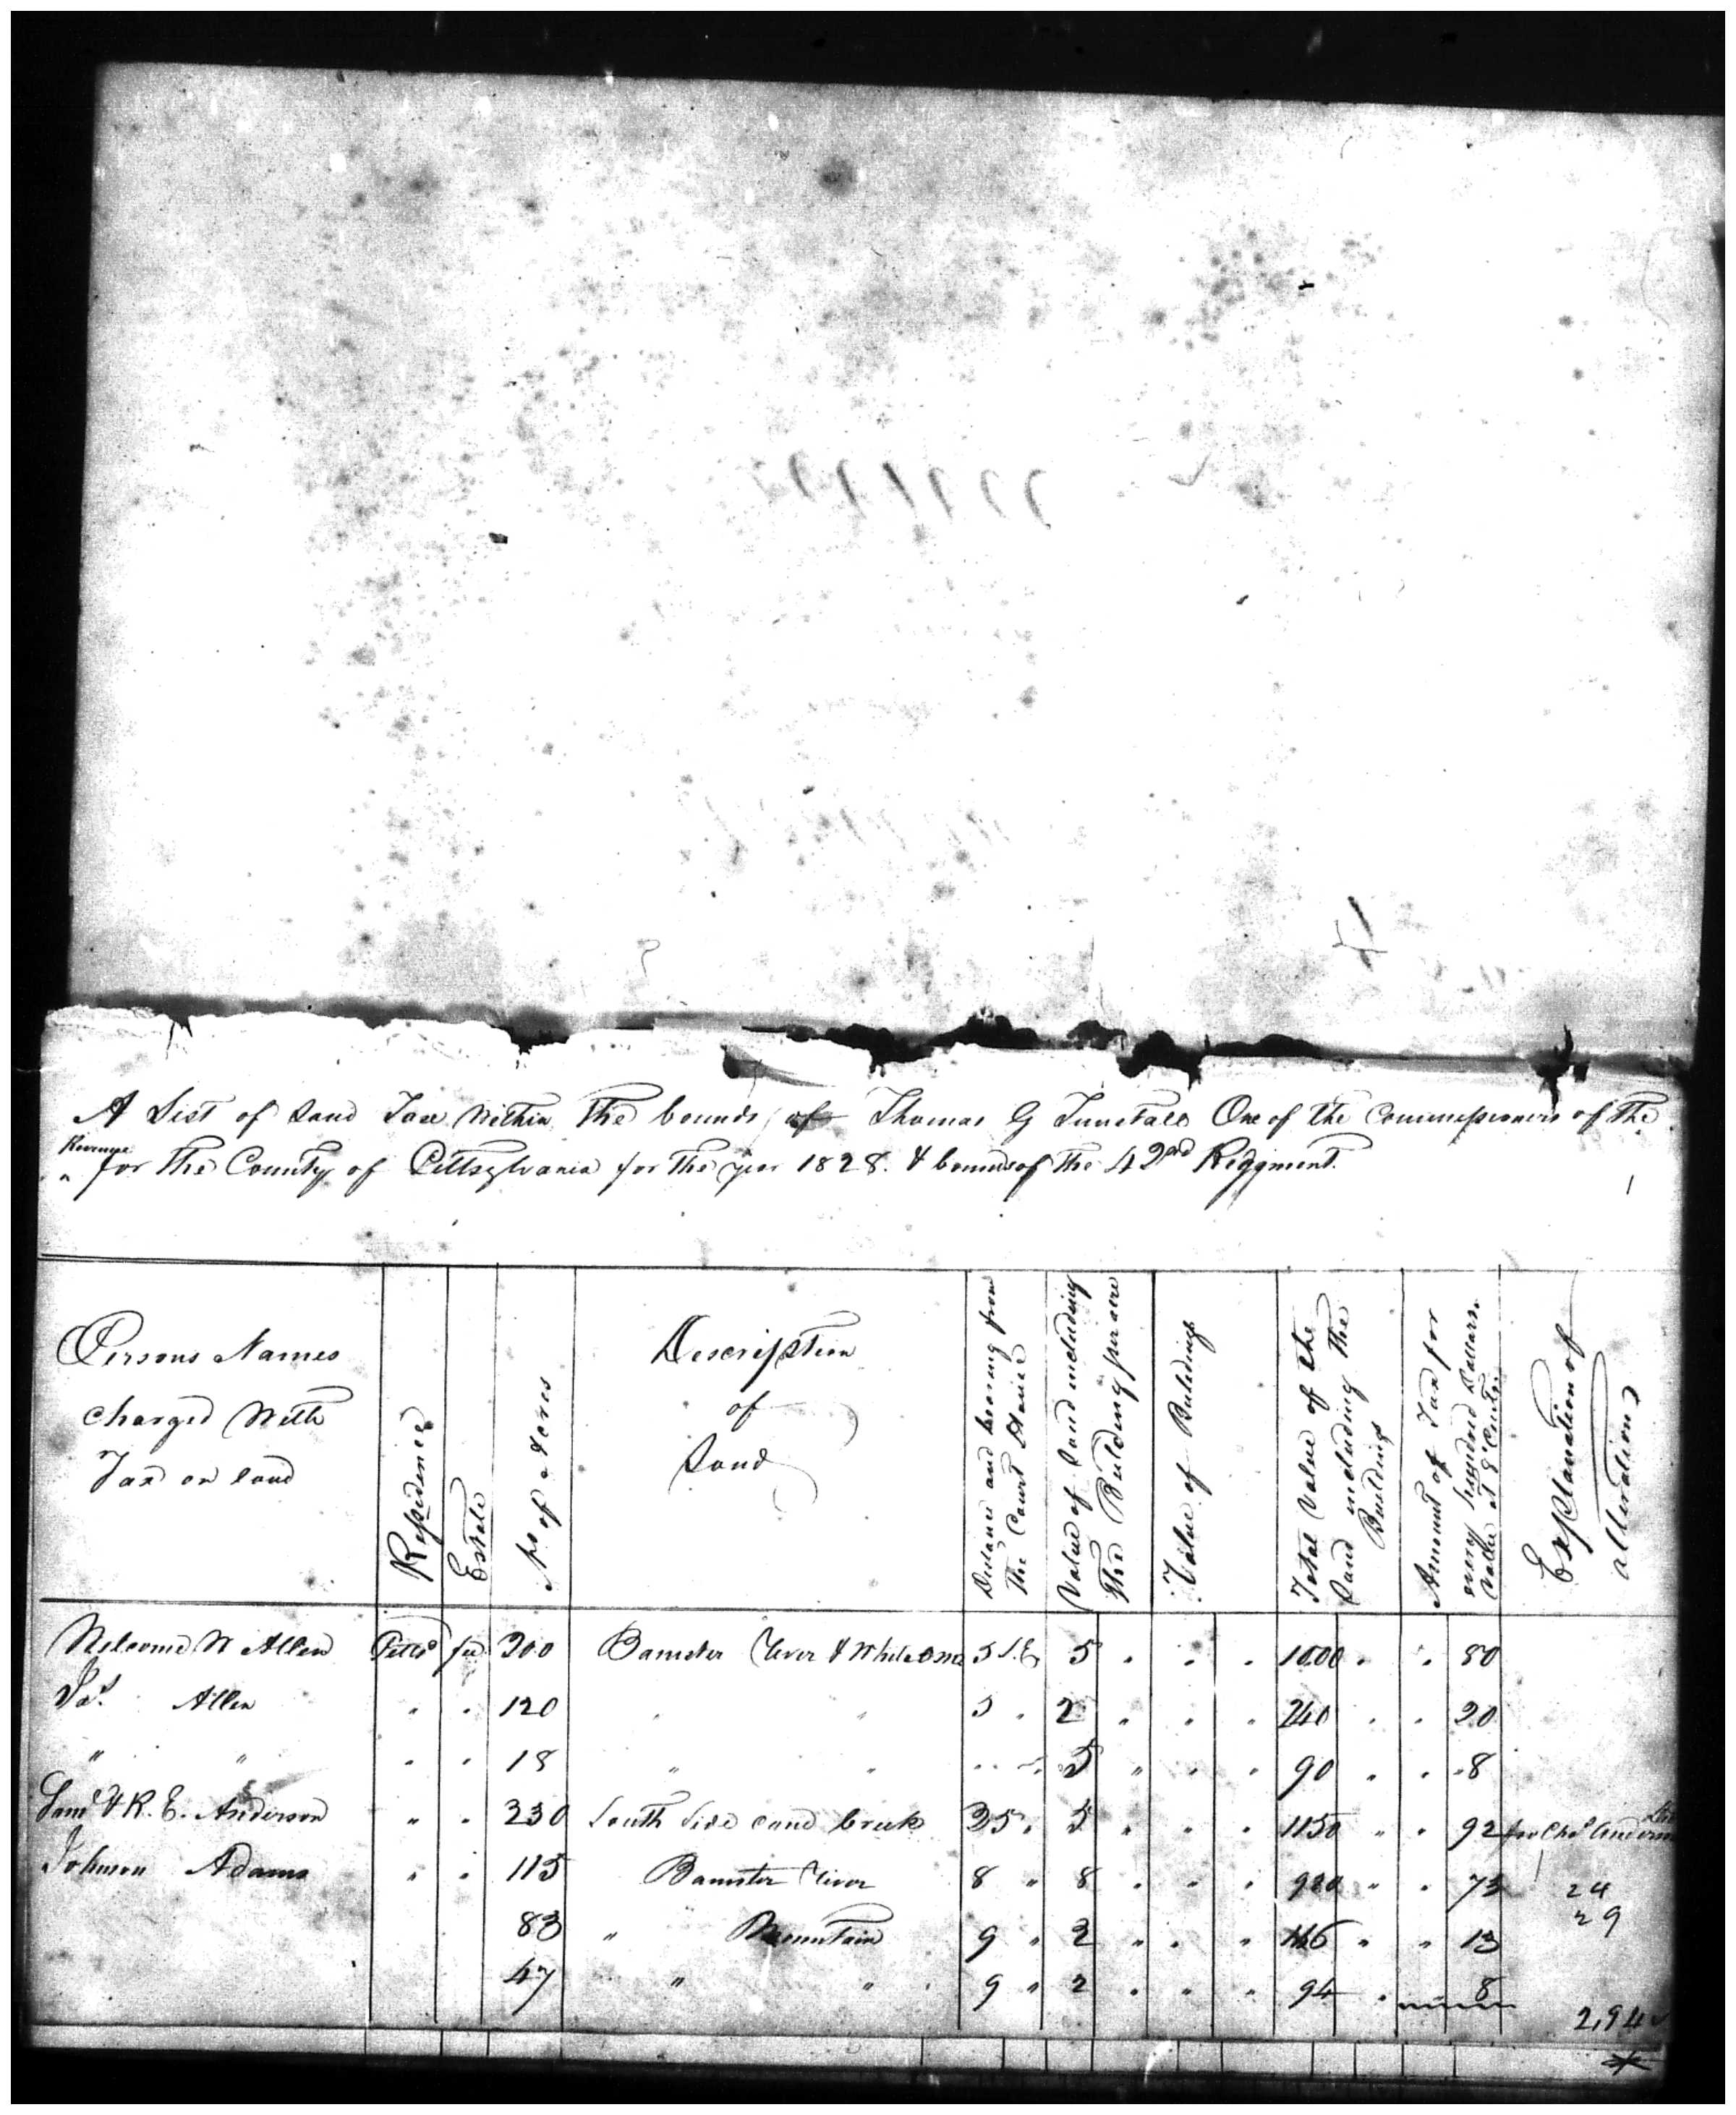 A List of Land Tax Within the bounds of Thomas G Tunstall One of the Commissioners of the
Revenue
" for the County of Pittsylvania for the year 1828. & bounds of the 42nd Regiment.
1
Persons Names
charged With
Tax on land
Residence
Estate
No of Acres
Description
of
Land
Distance and bearing from
the Court House
Value of Land including
the Building per acre
Value of Buildings
Total Value of the
Land including the
Buildings
Amount of Tax for
every hundred Dollars
Value at 8 Cents.
Explanation of
alteration
Welcome W Allen Pitts fee 200 Banister River & White 5 S.E 5 " " " 1000 " " 80
Jas. Allen " " 120 " " 5 " 2 " " " 240 " " 20
" " " " 18 " " " " 5 " " " 90 " " 8
Saml & R. E. Anderson " " 230 South Side Sand Creek 25 " 5 " " " 1150 " " 92 for Chs Anderson
Johnson Adams " " 115 Banister River 8 " 8 " " " 920 " " 73
24
29
83 " Mountain 9 " 2 " " " 166 " " 13
47 " " 9 " 2 " " " 94 " 8
2,94